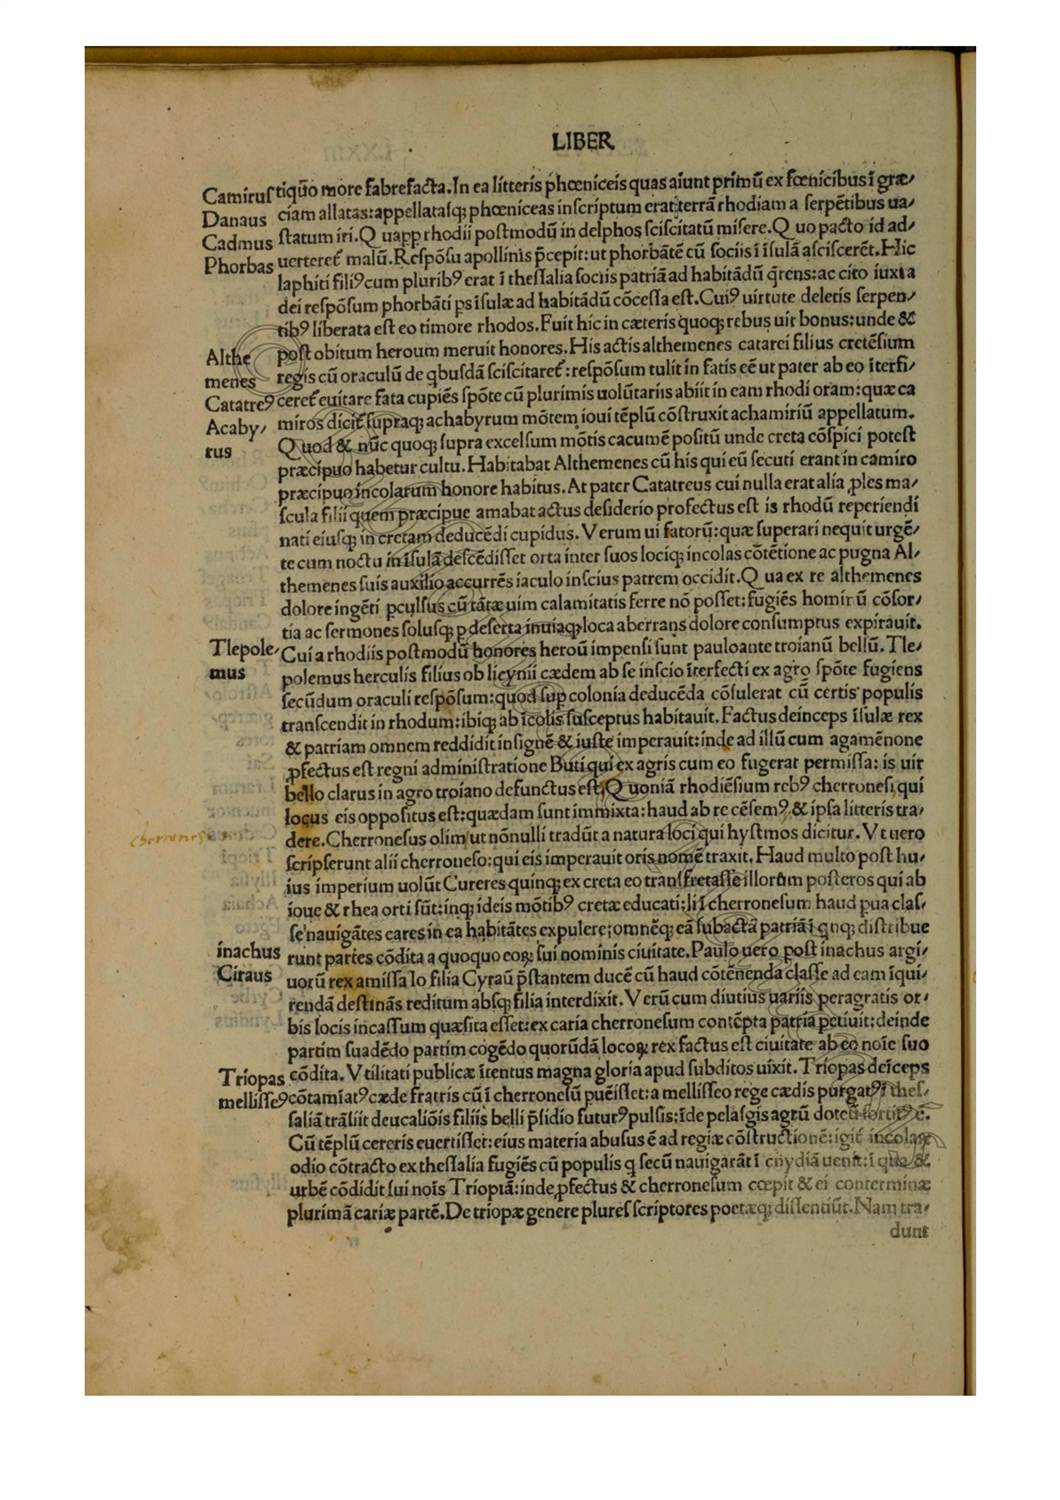 LIBER
Camirus
Danaus
Cadmus
Phorbas
tiq̃uo more fabrefacta. In ea litteris phœniceis quas aiunt primũ ex fœnicibus ĩ græ/
ciam allatas: appellatasq; phœniceas inscriptum erat: terrã rhodiam a serpẽtibus ua/
statum iri. Quapp rhodii postmodũ in delphos sciscitatũ misere. Quo pacto id ad/
uerteret̃ malũ. Respõsu apollinis p̃cepit: ut phorbãtẽ cũ sociis ĩ ĩsulã asciscerẽt. Hic
laphiti filiꝰ cum pluribꝰ erat ĩ thessalia sociis patriã ad habitãdũ q̃rens: ac cito iuxta
dei respõsum phorbãti ipsi ĩsulæ ad habitãdũ cõcessa est. Cuiꝰ uirtute deletis serpen/
tibꝰ liberata est eo timore rhodos. Fuit hic in cæteris quoq; rebus uir bonus: unde &
Althe
menes
Catatreꝰ
Acaby/
rus
post obitum heroum meruit honores. His actis althemenes catarei filius cretẽsium
regis cũ oraculũ de qbusdã sciscitaret̃: respõsum tulit in fatis eẽ ut pater ab eo ĩterfi/
ceret̃ euitare fata cupiẽs spõte cũ plurimis uolũtariis abiit in eam rhodi oram: quæ ca
miros dicit̃ supraq; achabyrum mõtem ioui tẽplũ cõstruxit achamiriũ appellatum.
Quod & nũc quoq; supra excelsum mõtis cacumẽ positũ unde creta cõspici potest
præcipuo habetur cultu. Habitabat Althemenes cũ his qui eũ secuti erant in camiro
præcipuo incolarum honore habitus. At pater Catatreus cui nulla erat alia ꝓles ma/
scula filii quem præcipue amabat actus desiderio profectus est is rhodũ reperiendi
nati eiusq; in cretam deducẽdi cupidus. Verum ui fatorũ: quæ superari nequit urgẽ/
te cum noctu in ĩsulã descẽdisset orta inter suos lociq; incolas cõtẽtione ac pugna Al/
themenes suis auxilio accurrẽs iaculo inscius patrem occidit. Qua ex re althemenes
dolore ingẽti pculsus cũ tãtæ uim calamitatis ferre nõ posset: fugiẽs hominũ cõsor/
tia ac sermones solusq; p deserta inuiaq; loca aberrans dolore consumptus expirauit.
Tlepole/
mus
Cui a rhodiis postmodũ honores heroũ impensi sunt pauloante troianũ bellũ. Tle/
polemus herculis filius ob licynii cædem ab se inscio ĩterfecti ex agro spõte fugiens
secũdum oraculi respõsum: quod sup colonia deducẽda cõsulerat cũ certis populis
transcendit in rhodum: ibiq; ab ĩcolis susceptus habitauit. Factus deinceps ĩsulæ rex
& patriam omnem reddidit insignẽ & iuste imperauit: inde ad illũ cum agamẽnone
ꝓfectus est regni administratione Buti qui ex agris cum eo fugerat permissa: is uir
bello clarus in agro troiano defunctus est. Quoniã rhodiẽsium rebꝰ cherronesi qui
locus eis oppositus est: quædam sunt immixta: haud ab re cẽsemꝰ & ipsa litteris tra/
dere. Cherronesus olim ut nõnulli tradũt a natura loci qui hystmos dicitur. Vt uero
scripserunt alii cherroneso: qui eis imperauit oris nomẽ traxit. Haud multo post hu/
ius imperium uolũt Cureres quinq; ex creta eo transfretasse illorum posteros qui ab
ioue & rhea orti sũt: inq; ideis mõtibꝰ cretæ educati: li ĩ cherronesum haud pua clas/
se nauigãtes cares in ea habitãtes expulere; omnẽq; eã subactã patriã ĩ qnq; distribue
cherronesus
inachus
Ciraus
runt partes cõdita a quoquo eoꝝ sui nominis ciuitate. Paulo uero post inachus argi/
uorũ rex amissa Io filia Cyraũ p̃stantem ducẽ cũ haud cõtẽnenda classe ad eam ĩqui/
rendã destinãs reditum absq; filia interdixit. Verũ cum diutius uariis peragratis or/
bis locis incassum quæsita esset: ex caria cherronesum contẽpta patria petiuit: deinde
partim suadẽdo partim cogẽdo quorũdã locoꝝ rex factus est ciuitate ab eo noĩe suo
Triopas
mellisseꝰ
cõdita. Vtilitati publicæ ĩtentus magna gloria apud subditos uixit. Triopas deĩceps
cõtamĩatꝰ cæde fratris cũ ĩ cherronesũ puẽisset: a mellisseo rege cædis purgatꝰ ĩ thes/
saliã trãsiit deucaliõis filiis belli p̃sidio futurꝰ pulsis: ĩde pelasgis agrũ doteũ sortitꝰ ẽ.
Cũ tẽplũ cereris euertisset: eius materia abusus ẽ ad regiæ cõstructionẽ: igit̃ incolaꝝ
odio cõtracto ex thessalia fugiẽs cũ populis q secũ nauigarãt ĩ cnydiã uenit: ĩ qua &
urbẽ cõdidit sui noĩs Triopiã: inde ꝓfectus & cherronesum cœpit & ei conterminæ
plurimã cariæ partẽ. De triopæ genere plures scriptores poetæq; dissentiũt. Nam tra/
dunt